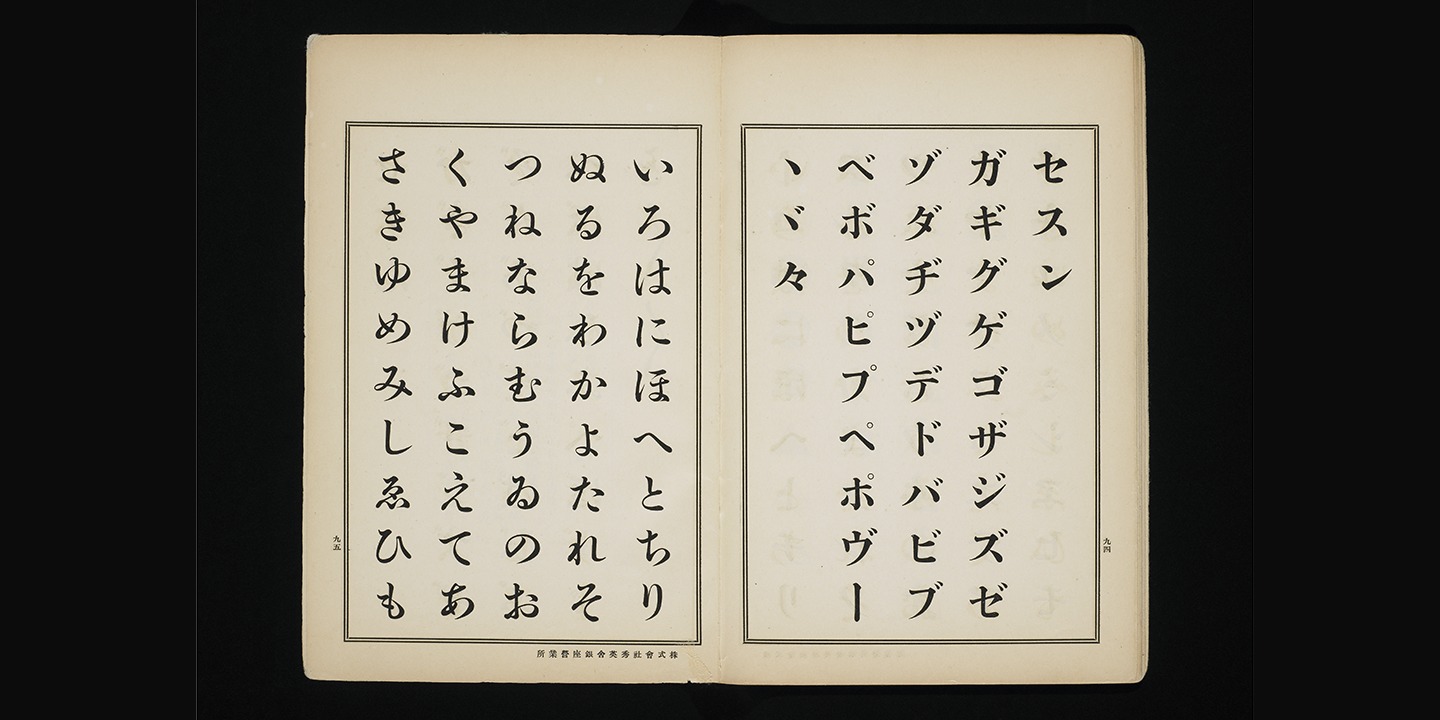 セスン
ガギグゲゴザジズゼ
ゾダヂヅデドバビブ
ベボパピプペポヴー
ヽヾ々
九四
いろはにほへとちり
ぬるをわかよたれそ
つねならむうゐのお
くやまけふこえてあ
さきゆめみしゑひも
九五
株式會社秀英舍銀座營業所